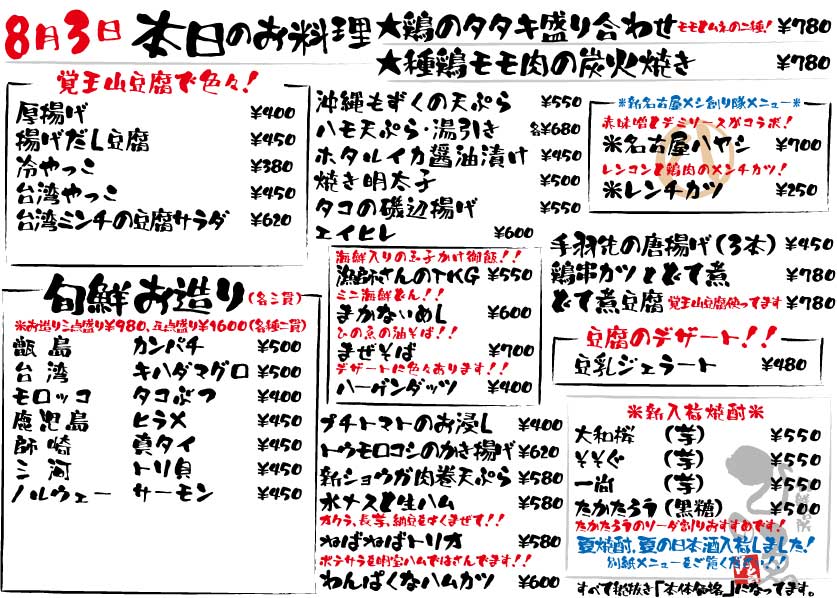 8月3日 本日のお料理
★鶏のタタキ盛り合わせ モモとムネの二種! ¥780
★種鶏モモ肉の炭火焼き ¥780
覚王山豆腐で色々!
厚揚げ ¥400
揚げだし豆腐 ¥450
冷やっこ ¥380
台湾やっこ ¥450
台湾ミンチの豆腐サラダ ¥620
旬鮮お造り(名三貫)
※お造り三点盛り¥980、五点盛り¥1600(各種二貫)
甑島 カンパチ ¥500
台湾 キハダマグロ ¥500
モロッコ タコぶつ ¥400
鹿児島 ヒラメ ¥450
師崎 真タイ ¥450
三河 トリ貝 ¥450
ノルウェー サーモン ¥450
沖縄もずくの天ぷら ¥550
ハモ天ぷら・湯引き 各¥680
ホタルイカ醤油漬け ¥450
焼き明太子 ¥500
タコの磯辺揚げ ¥550
エイヒレ ¥600
海鮮入りの玉子かけ御飯!!
漁師さんのTKG ¥550
ミニ海鮮どん!!
まかないめし ¥600
ひの魚の油そば!!
まぜそば ¥700
デザートに色々あります!!
ハーゲンダッツ ¥400
プチトマトのお浸し ¥400
トウモロコシのかき揚げ ¥620
新ショウガ肉巻天ぷら ¥580
水ナスと生ハム ¥580
オクラ、長芋、納豆をよくまぜて!!
ねばねばトリオ ¥580
ポテサラを自家製ハムではさんでます!!
わんぱくなハムカツ ¥600
※新名古屋メシ創り隊メニュー※
赤味噌とデミソースがコラボ!
※名古屋ハヤシ ¥700
レンコンと鶏肉のメンチカツ!
※レンチカツ ¥250
手羽先の唐揚げ(3本) ¥450
鶏串カツとどて煮 ¥780
どて煮豆腐 覚王山豆腐使ってます ¥780
豆腐のデザート!!
豆乳ジェラート ¥480
※新入荷焼酎※
大和桜 (芋) ¥550
そそぐ (芋) ¥550
一尚 (芋) ¥550
たかたろう(黒糖) ¥500
たかたろうのソーダ割りおすすめです!
夏焼酎、夏の日本酒入荷しました!
別紙メニューをご覧ください!!
すべて税抜き「本体価格」になってます。